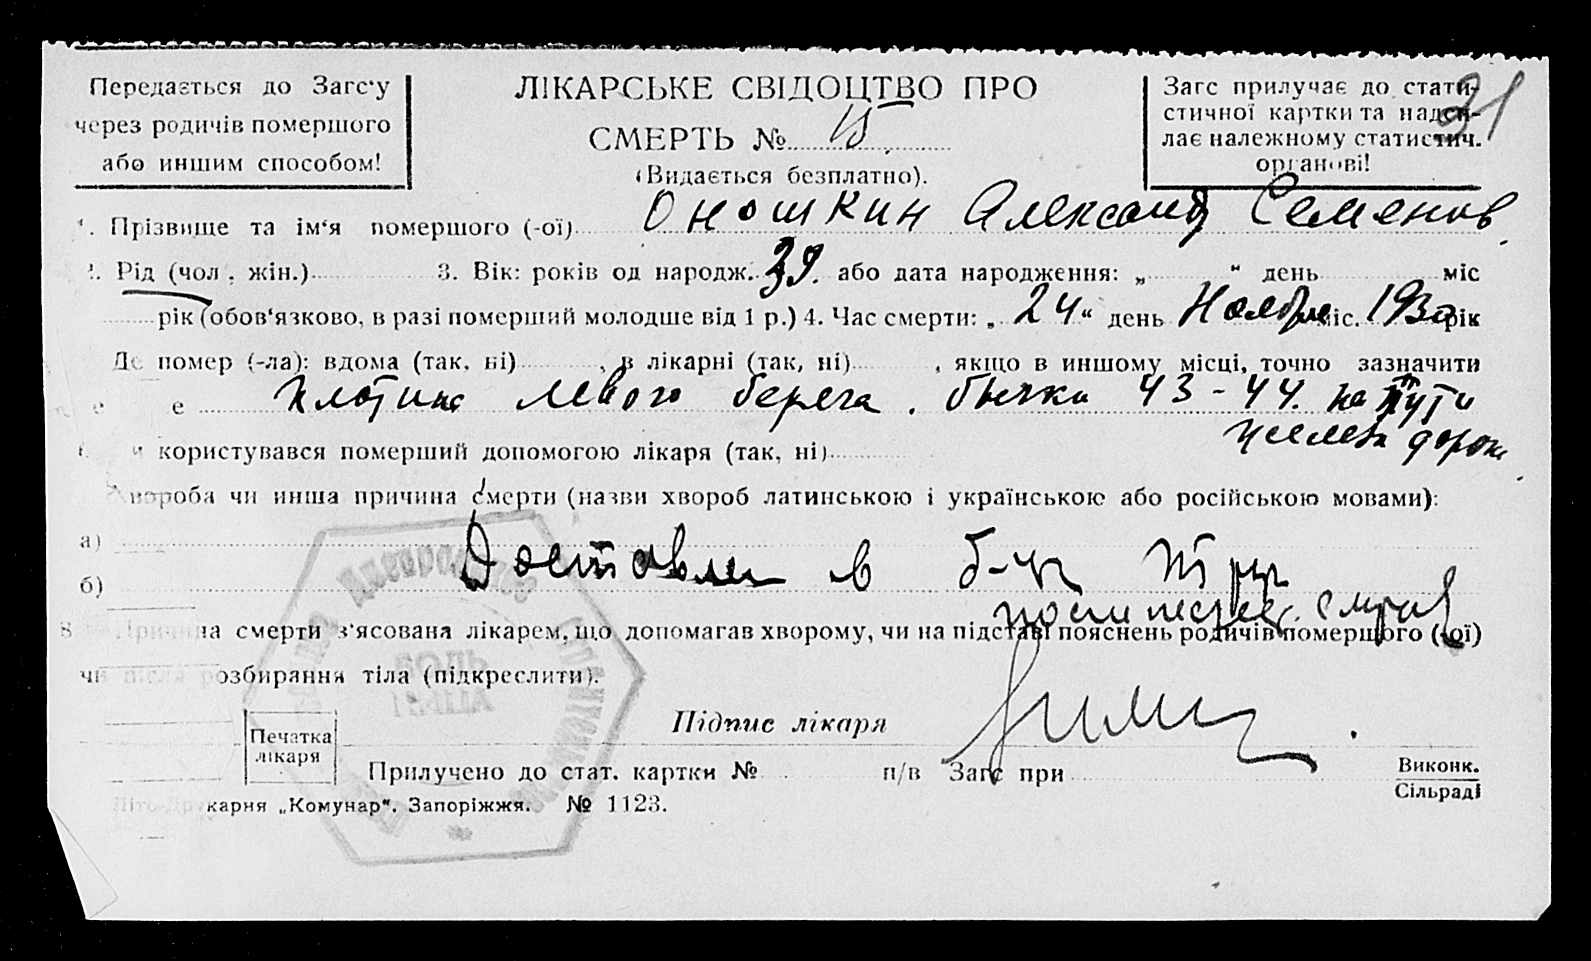 Передається до Загс'у
через родичів помершого
або иншим способом!
ЛІКАРСЬКЕ СВІДОЦТВО ПРО
СМЕРТЬ № 15
(Видається безплатно).
Загс прилучає до стати-
стичної картки та надси-
лає належному статистич.
органові!
21
1. Прізвище та ім'я помершого (-ої) Оношкин Александ Семенов
2. Рід (чол., жін.) 3. Вік: років од народж. 39. або дата народження: „ " день міс
рік (обов'язково, в разі померший молодше від 1 р.) 4. Час смерти: „ 24 " день Ноября міс. 1930 рік
Де помер (-ла): вдома (так, ні) , в лікарні (так, ні) , якщо в иншому місці, точно зазначити
е е плотина левого берега. бычки 43-44. на пути
железн дороги
и користувався померший допомогою лікаря (так, ні)
Хвороба чи инша причина смерти (назви хвороб латинською і українською або російською мовами):
а)
б) Доставлен в б-цу труп
8 Причина смерти з'ясована лікарем, що допомагав хворому, чи на підставі пояснень родичів помершого (-ої)
чи після розбирання тіла (підкреслити).
Підпис лікаря
Печатка
лікаря
Прилучено до стат. картки № п/в Загс при Виконк.
Сільраді
Літо-Друкарня „Комунар". Запоріжжя. № 1123.